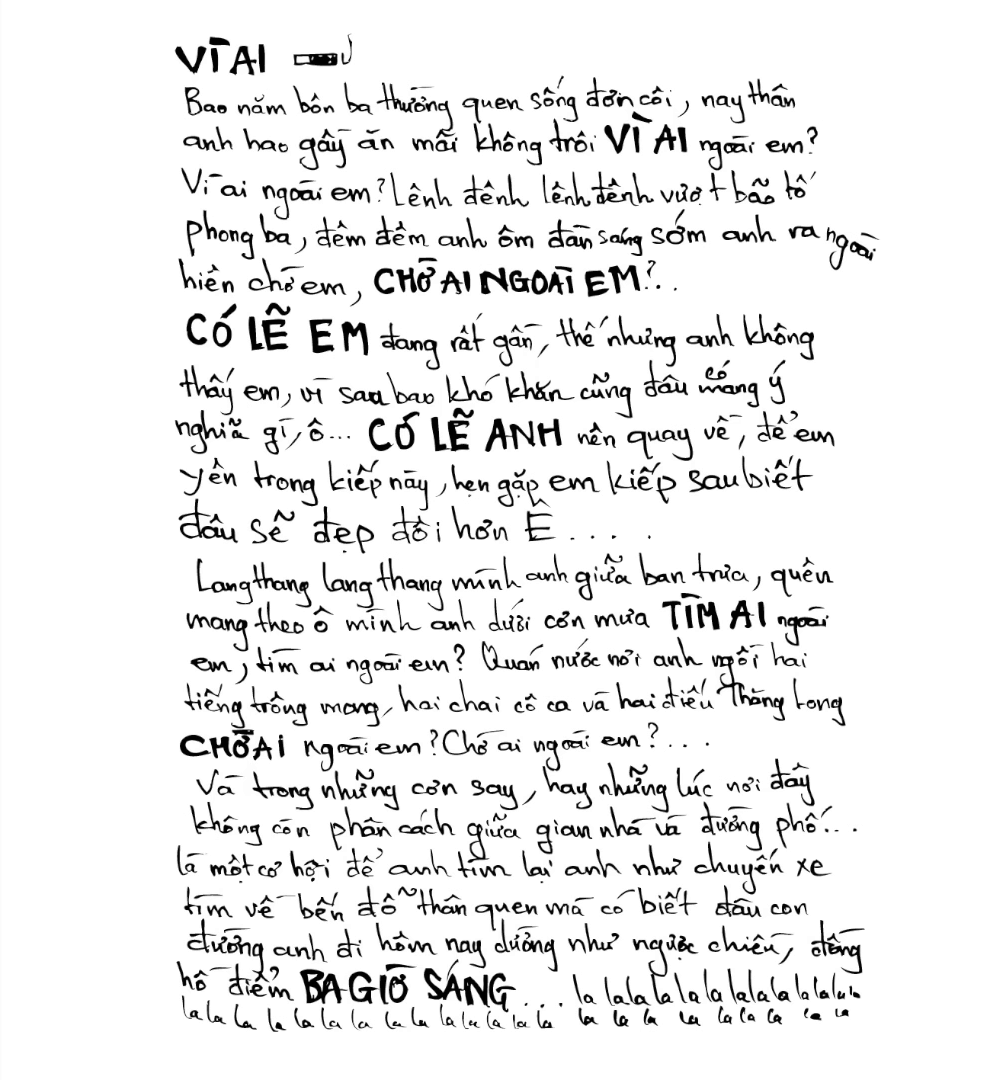 VÌ AI
Bao năm bôn ba thường quen sống đơn côi, nay thân
anh hao gầy ăn mãi không trôi VÌ AI ngoài em?
Vì ai ngoài em? Lênh đênh lênh đênh vượt bão tố
phong ba, đêm đêm anh ôm đàn sáng sớm anh ra ngoài
hiên chờ em, CHỜ AI NGOÀI EM?..
CÓ LẼ EM đang rất gần, thế nhưng anh không
thấy em, vì sau bao khó khăn cũng đâu có mang ý
nghĩa gì, ô... CÓ LẼ ANH nên quay về, để em
yên trong kiếp này, hẹn gặp em kiếp sau biết
đâu sẽ đẹp đôi hơn Ê.....
Lang thang lang thang mình anh giữa ban trưa, quên
mang theo ô mình anh dưới cơn mưa TÌM AI ngoài
em, tìm ai ngoài em? Quán nước nơi anh ngồi hai
tiếng trông mong, hai chai cô ca và hai điếu Thăng Long
CHỜ AI ngoài em? Chờ ai ngoài em?...
Và trong những cơn say, hay những lúc nơi đây
không còn phân cách giữa gian nhà và đường phố...
là một cơ hội để anh tìm lại anh như chuyến xe
tìm về bến đỗ thân quen mà có biết đâu con
đường anh đi hôm nay dường như ngược chiều, đồng
hồ điểm BA GIỜ SÁNG... la la la la la la la la la la la la la
la la la la la la la la la la la la la la la la la la la la la la